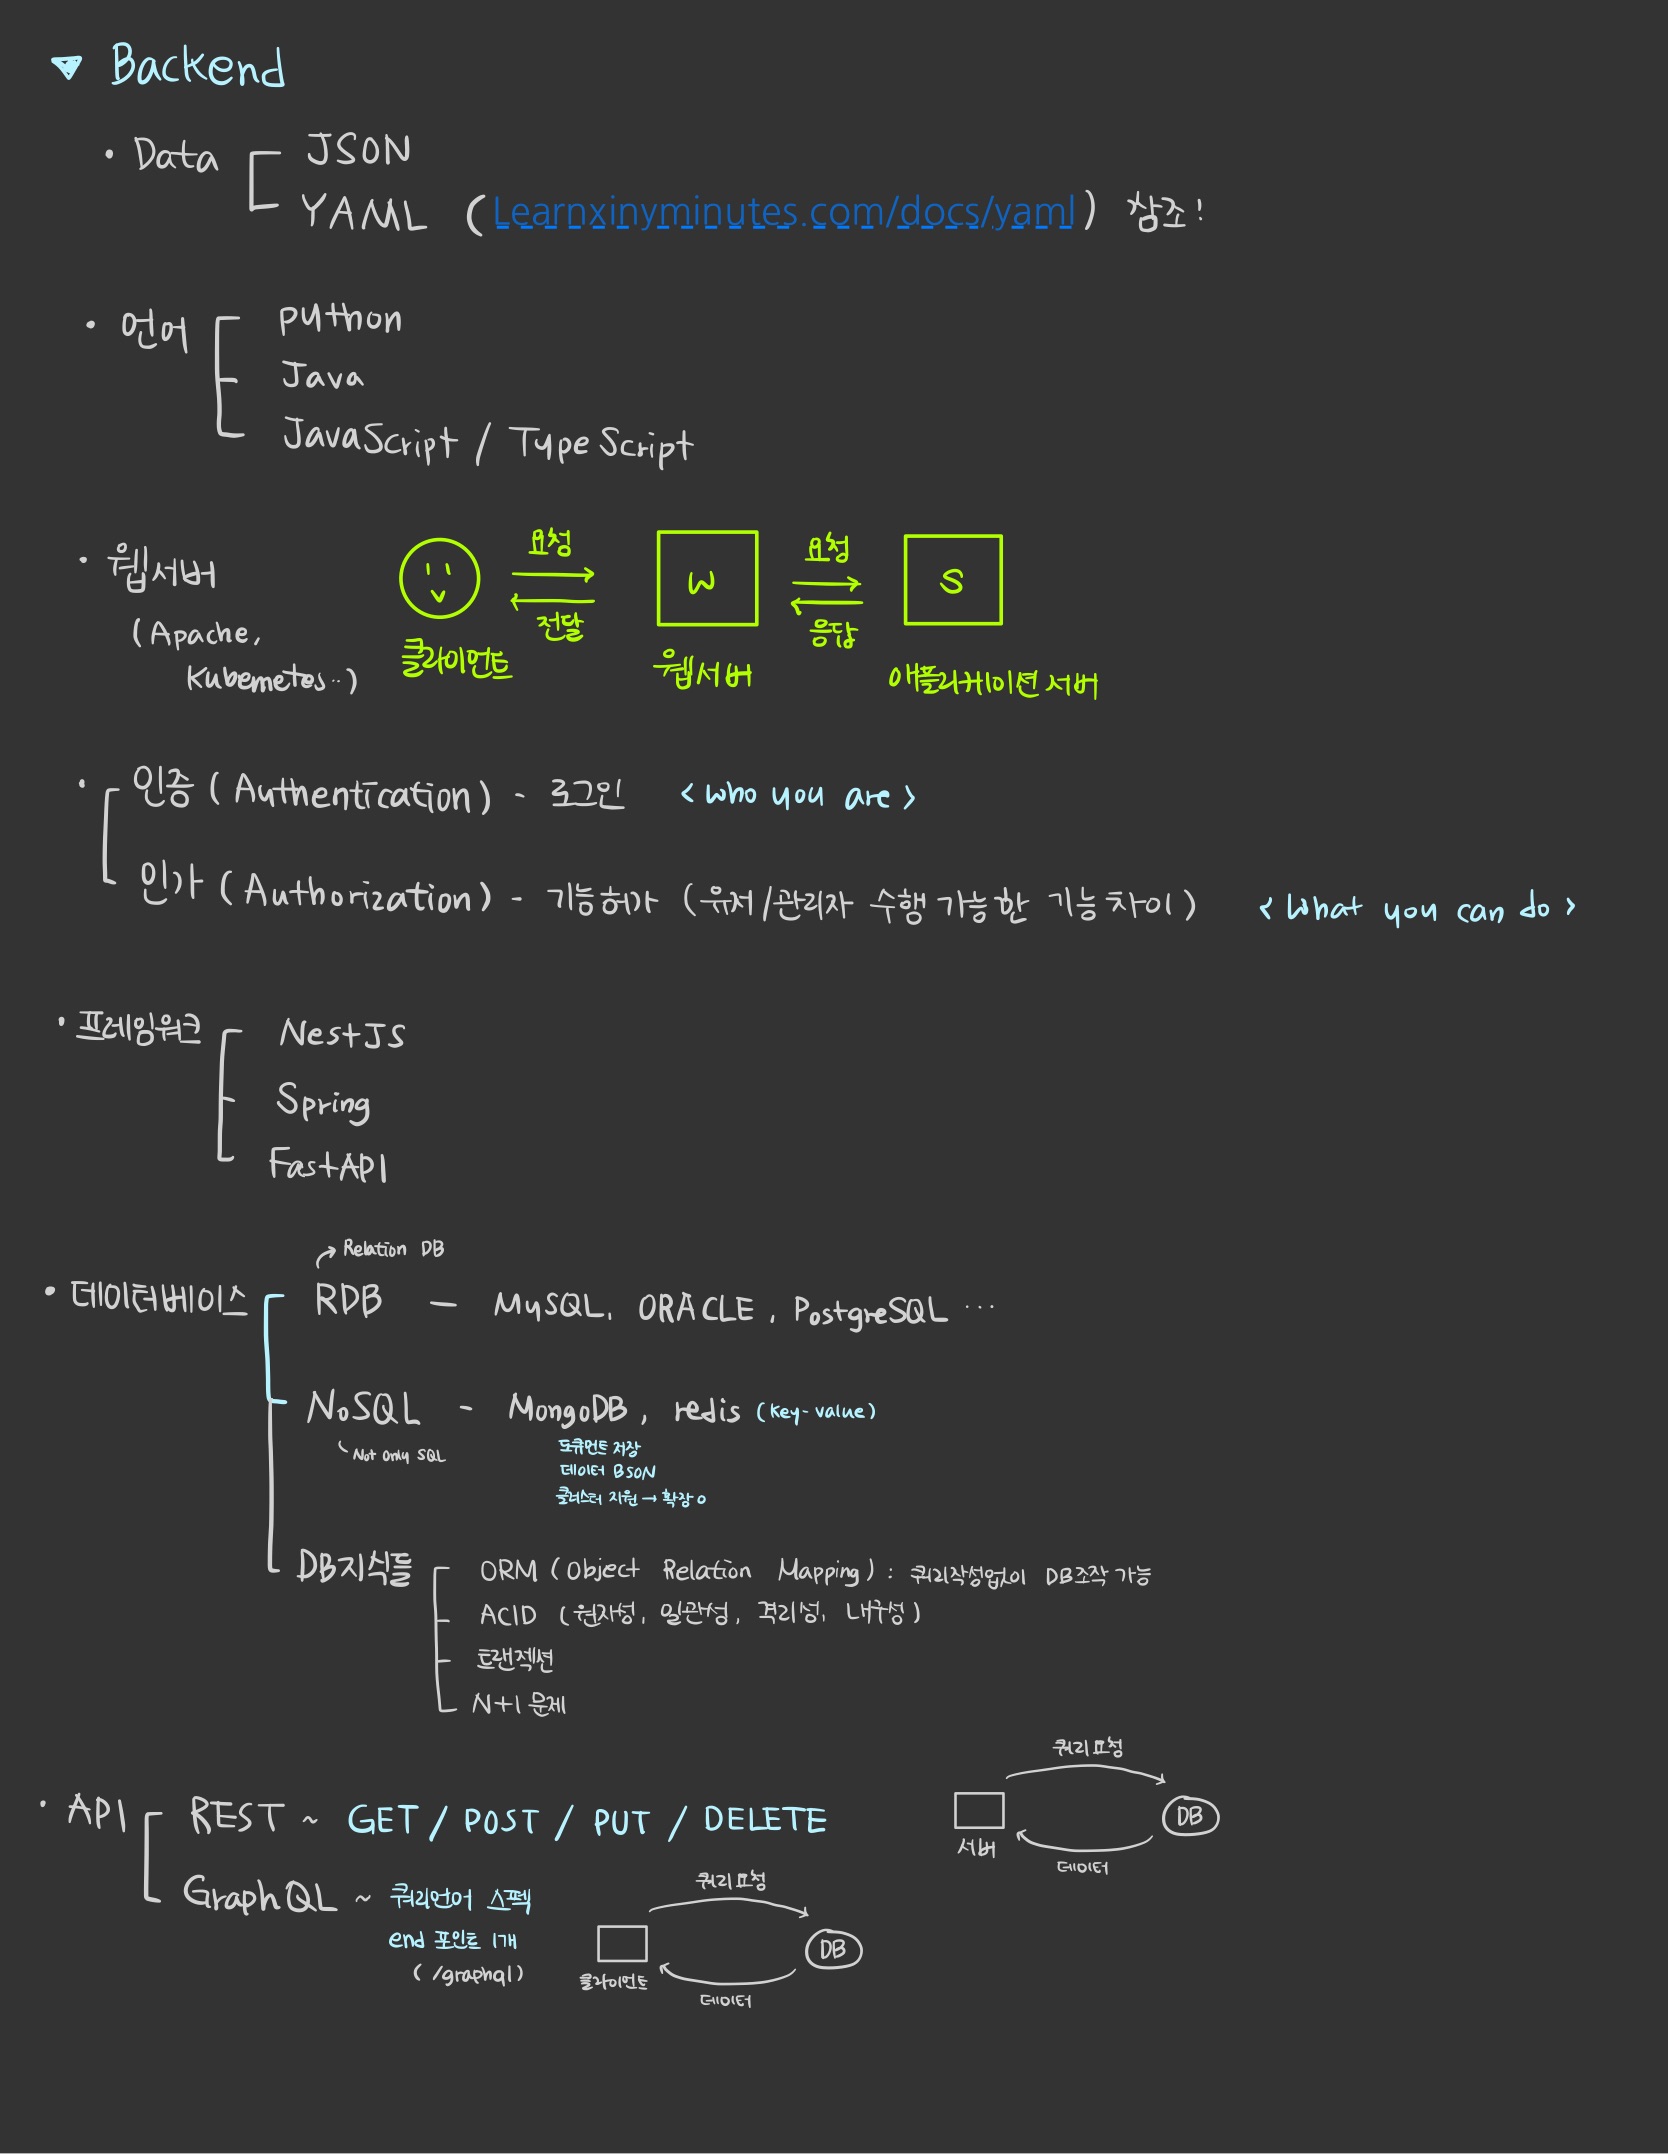 ▼ Backend
· Data JSON
YAML (Learnxinyminutes.com/docs/yaml) 참조!
· 언어 python
Java
JavaScript / TypeScript
· 웹서버
(Apache,
Kubernetes..)
요청
전달
클라이언트
W
웹서버
요청
응답
S
애플리케이션 서버
· 인증 (Authentication) - 로그인 <who you are>
인가 (Authorization) - 기능허가 (유저/관리자 수행 가능한 기능 차이) <What you can do>
· 프레임워크 NestJS
Spring
FastAPI
Relation DB
· 데이터베이스 RDB — MySQL, ORACLE, PostgreSQL ...
NoSQL - MongoDB, redis (key-value)
Not only SQL
도큐먼트 저장
데이터 BSON
클러스터 지원 → 확장 o
DB지식들 ORM (Object Relation Mapping) : 쿼리작성없이 DB조작 가능
ACID (원자성, 일관성, 격리성, 내구성)
트랜젝션
N+1 문제
· API REST ~ GET / POST / PUT / DELETE
쿼리 요청
서버
DB
데이터
GraphQL ~ 쿼리언어 스펙
end 포인트 1개
(/graphql)
쿼리 요청
클라이언트
DB
데이터